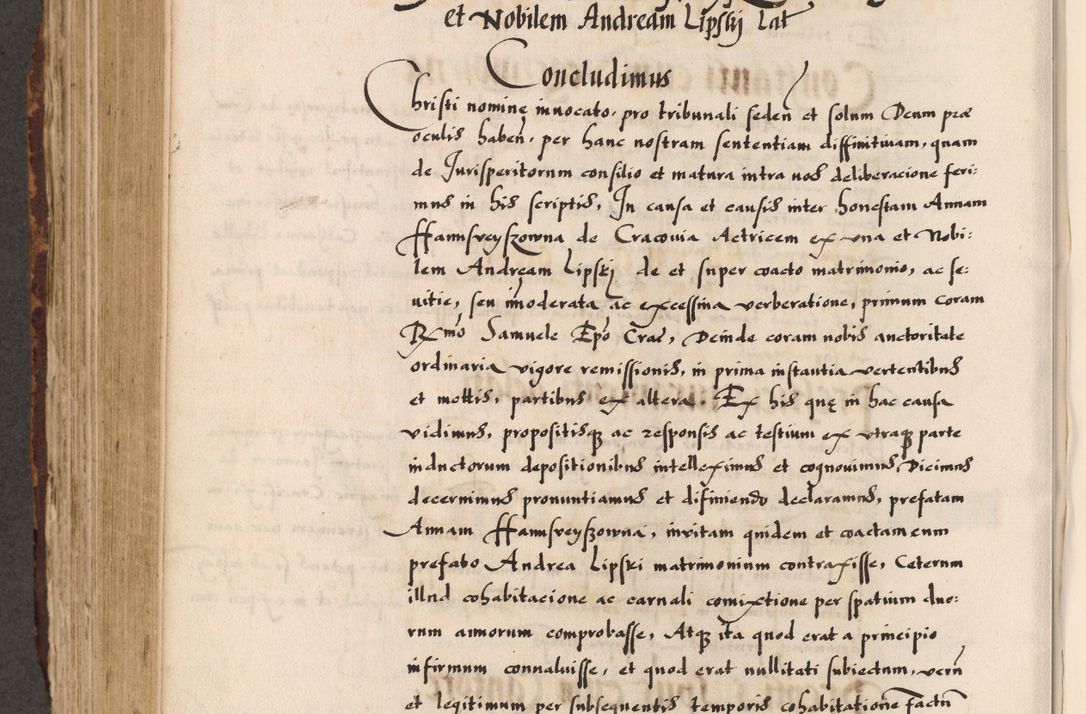 et Nobilem Andream Lipskj Lat
Concludimus
Christi nominę inuocato, pro tribunali seden̄ et solum Deum præ
oculis haben̄, per hanc nostram sententiam diffinitiuam, quam
de Jurisperitorum consilio et matura intra nos deliberacione feri:
mus in his scriptis, In causa et causis inter honestam Annam
Hannsreyszowna de Cracouia Actricem ex vna et Nobi:
lem Andream Lipskj de et super coacto matrimonio, ac se:
uitie, seu imoderata ac excessiua verberatione, primum coram
Rmo Samuele Epo Crac, Deinde coram nobis auctoritate
ordinaria vigore remissionis, in prima instantia vertentibus
et motis, partibus ex altera, Ex his quę in hac causa
vidimus, propositisq ac responsis ac testium ex vtraq parte
inductorum depositionibus intelleximus et cognouimus Dicimus
decernimus pronuntiamus et difiniendo declaramus, prefatam
Annam Hannsreyszowna, inuitam quidem et coactam cum
prefato Andrea Lipski matrimonium contraxisse, Ceterum
illud cohabitacione ac carnali comixtione per spatium duo:
rum annorum comprobasse, Atq ita quod erat a principio
infirmum conualuisse, et quod erat nullitati subiectum, verū
et legitimum per subsequentis temporis cohabitationē factū